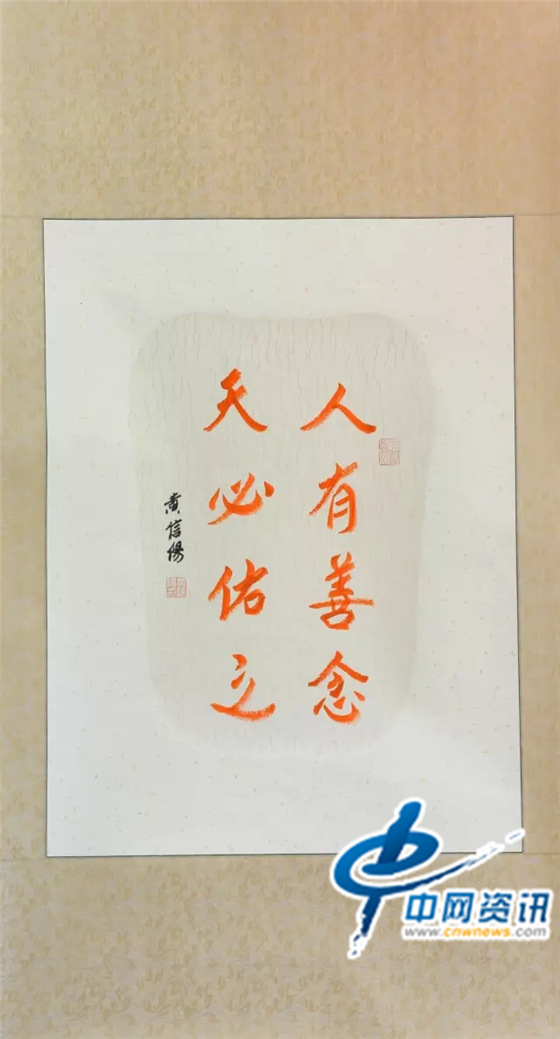 人有善念
天必佑之
黄信陽
中网资讯
www.cnwnews.com